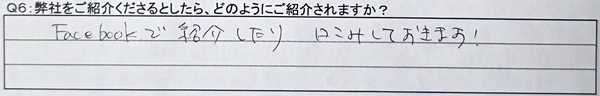 Q6:弊社をご紹介くださるとしたら、どのようにご紹介されますか?
Facebookで紹介したり 口こみしておきます!